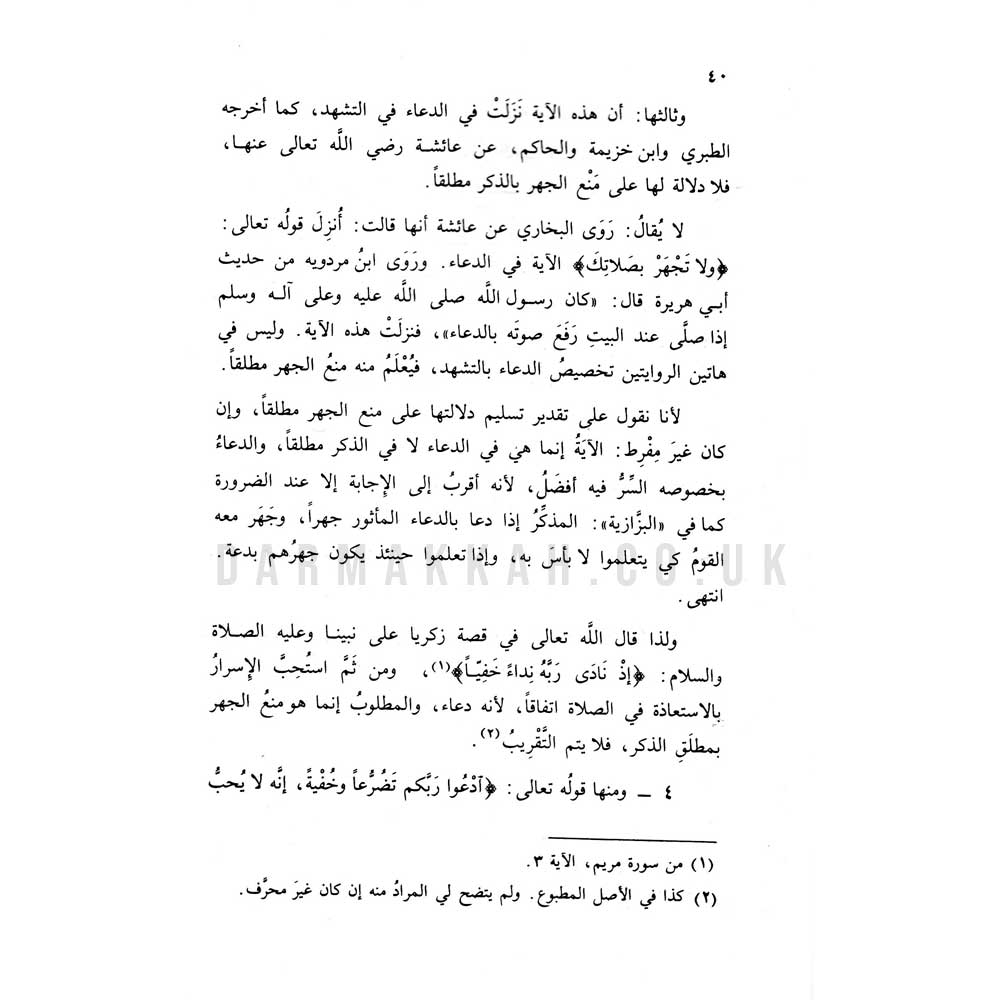 ٤٠
وثالثها: أن هذه الآية نَزَلَتْ في الدعاء في التشهد، كما أخرجه
الطبري وابن خزيمة والحاكم، عن عائشة رضي اللَّه تعالى عنها،
فلا دلالة لها على مَنْع الجهر بالذكر مطلقاً.
لا يُقالُ: رَوَى البخاري عن عائشة أنها قالت: أُنزِلَ قولُه تعالى:
﴿ولا تَجْهَرْ بصَلاتِكَ﴾ الآية في الدعاء. ورَوَى ابنُ مردويه من حديث
أبي هريرة قال: «كان رسول اللَّه صلى اللَّه عليه وعلى آله وسلم
إذا صلَّى عند البيتِ رَفَعَ صوتَه بالدعاء»، فنزلَتْ هذه الآية. وليس في
هاتين الروايتين تخصيصُ الدعاء بالتشهد، فيُعْلَمُ منه منعُ الجهر مطلقاً.
لأنا نقول على تقدير تسليم دلالتها على منع الجهر مطلقاً، وإن
كان غيرَ مِفْرِط: الآيَةُ إنما هي في الدعاء لا في الذكر مطلقاً، والدعاءُ
بخصوصه السِّرُّ فيه أفضَلُ، لأنه أقربُ إلى الإِجابة إلا عند الضرورة
كما في «البزَّازية»: المذكِّرُ إذا دعا بالدعاء المأثور جهراً، وجَهَر معه
القومُ كي يتعلموا لا بأس به، وإذا تعلموا حينئذ يكون جهرُهم بدعة.
انتهى.
ولذا قال اللَّه تعالى في قصة زكريا على نبينا وعليه الصلاة
والسلام: ﴿إذْ نَادَى رَبَّهُ نِداءً خَفِيّاً﴾(١)، ومن ثَمَّ استُحِبَّ الإِسرارُ
بالاستعاذة في الصلاة اتفاقاً، لأنه دعاء، والمطلوبُ إنما هو منعُ الجهر
بمطلَقِ الذكر، فلا يتم التَّقْرِيبُ(٢).
٤ ــ ومنها قولُه تعالى: ﴿اَدْعُوا رَبَّكم تَضُرُّعاً وخُفْيةً، إنَّه لا يُحبُّ
(١) من سورة مريم، الآية ٣.
(٢) كذا في الأصل المطبوع. ولم يتضح لي المرادُ منه إن كان غيرَ محرَّف.
DARMAKKAH.CO.UK